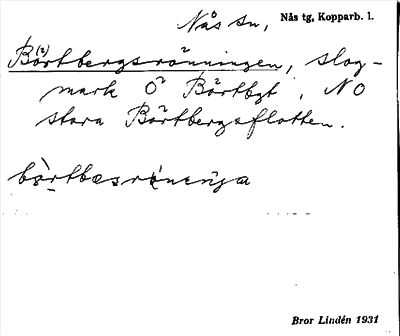 Nås sn, Nås tg, Kopparb. l.
Bö(²)rtbergsrönningen, slog-
mark Ö Börtbgt, NO
stora Börtbergsflotten.
Bror Lindén 1931